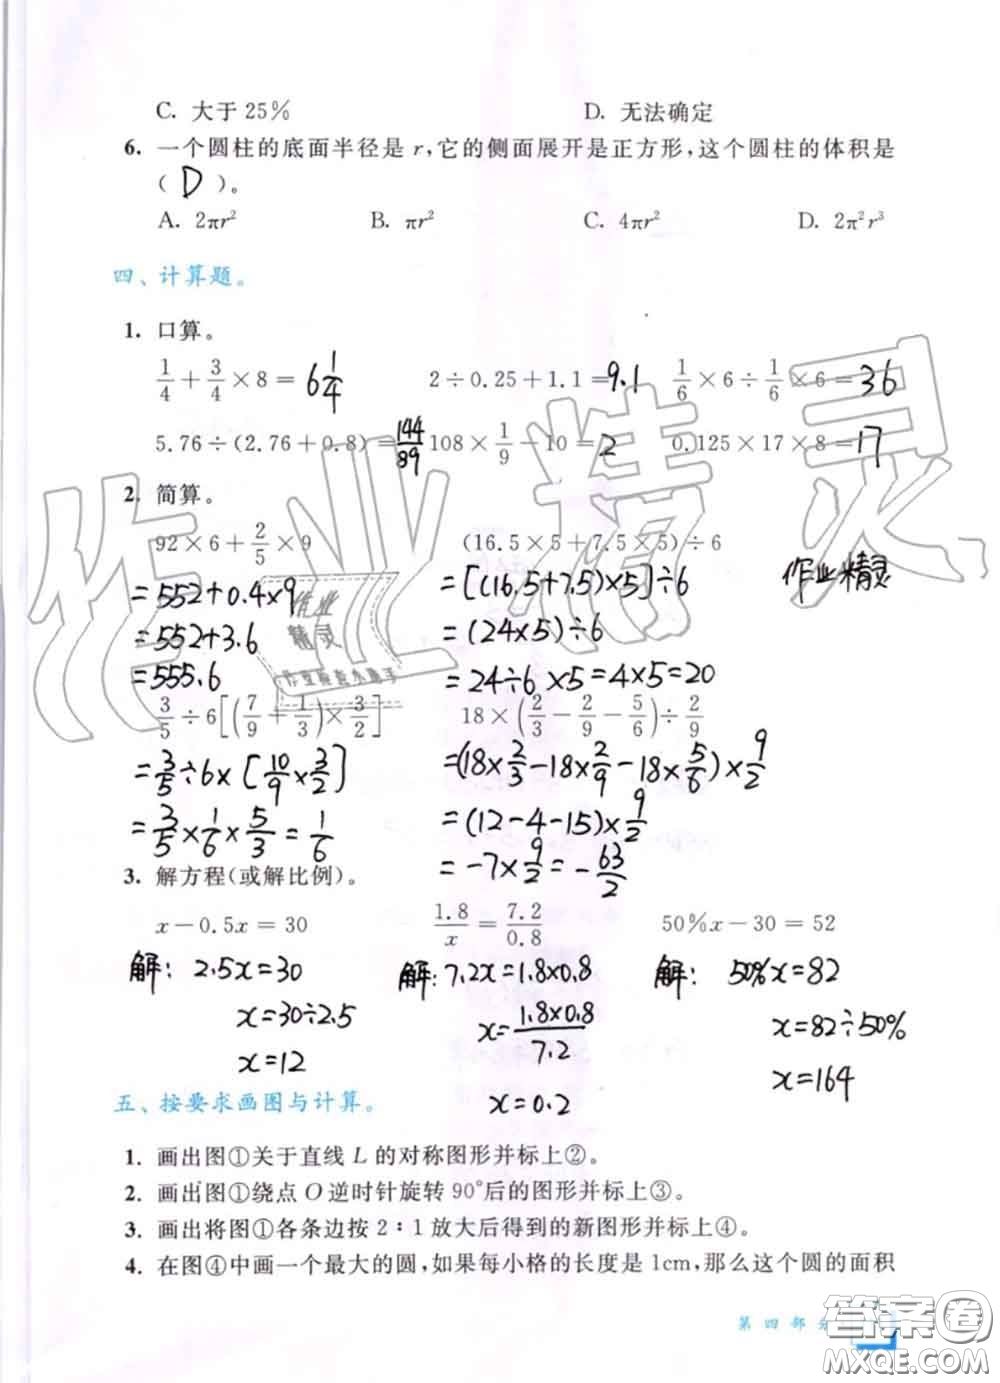 C. 大于 25%  D. 无法确定
6. 一个圆柱的底面半径是 r，它的侧面展开是正方形，这个圆柱的体积是
（ D ）。
A. 2πr²  B. πr²  C. 4πr²  D. 2π²r³
四、计算题。
1. 口算。
1/4 + 3/4 × 8 = 6 1/4  2 ÷ 0.25 + 1.1 = 9.1  1/6 × 6 ÷ 1/6 × 6 = 36
5.76 ÷ (2.76 + 0.8) = 144/89  108 × 1/9 − 10 = 2  0.125 × 17 × 8 = 17
2. 简算。
92 × 6 + 2/5 × 9  (16.5 × 5 + 7.5 × 5) ÷ 6
= 552 + 0.4 × 9  = [(16.5 + 7.5) × 5] ÷ 6  作业精灵
= 552 + 3.6  = (24 × 5) ÷ 6
= 555.6  = 24 ÷ 6 × 5 = 4 × 5 = 20
3/5 ÷ 6[(7/9 + 1/3) × 3/2]  18 × (2/3 − 2/9 − 5/6) ÷ 2/9
= 3/5 ÷ 6 × [10/9 × 3/2]  = (18 × 2/3 − 18 × 2/9 − 18 × 5/6) × 9/2
= 3/5 × 1/6 × 5/3 = 1/6  = (12 − 4 − 15) × 9/2
= −7 × 9/2 = − 63/2
3. 解方程(或解比例)。
x − 0.5x = 30  1.8/x = 7.2/0.8  50%x − 30 = 52
解: 2.5x = 30  解: 7.2x = 1.8 × 0.8  解: 50%x = 82
x = 30 ÷ 2.5  x = 1.8 × 0.8/7.2  x = 82 ÷ 50%
x = 12  x = 0.2  x = 164
五、按要求画图与计算。
1. 画出图①关于直线 L 的对称图形并标上②。
2. 画出图①绕点 O 逆时针旋转 90°后的图形并标上③。
3. 画出将图①各条边按 2∶1 放大后得到的新图形并标上④。
4. 在图④中画一个最大的圆，如果每小格的长度是 1cm，那么这个圆的面积
第四部分
作业精灵
作业
精灵
答案圈
MXQE.COM